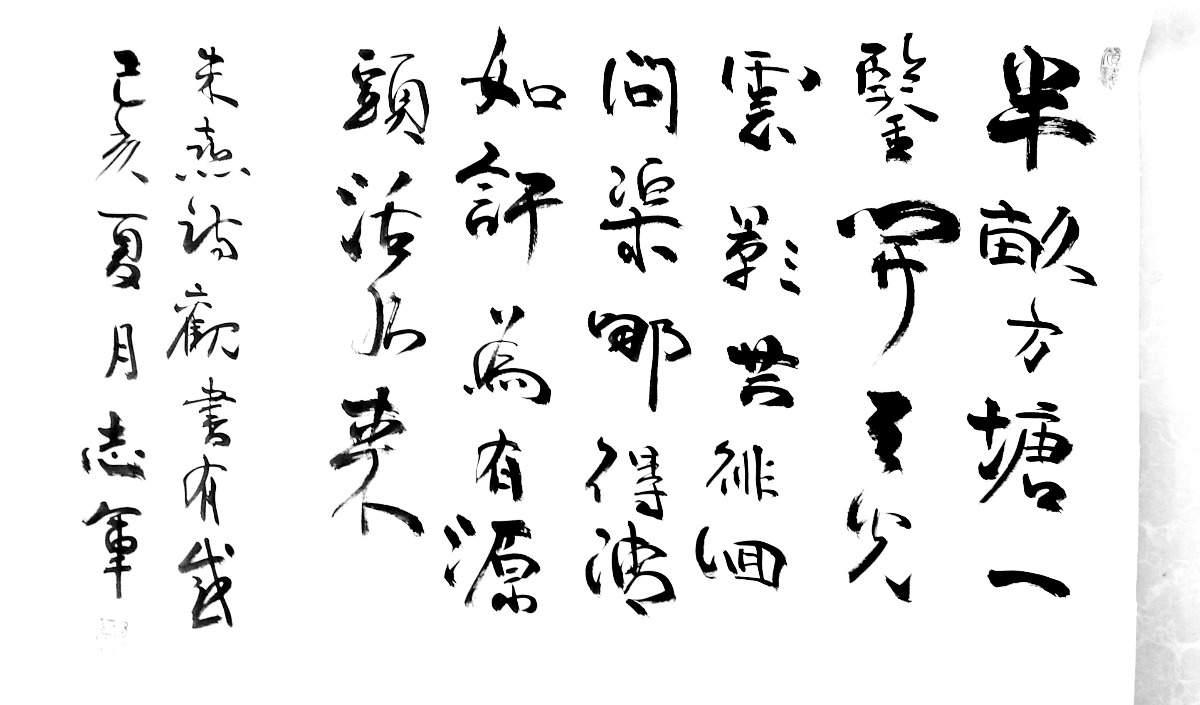 半畝方塘一
鑒開天光
雲影共徘徊
問渠哪得清
如許為有源
頭活水來
朱熹詩觀書有感
己亥夏月志軍